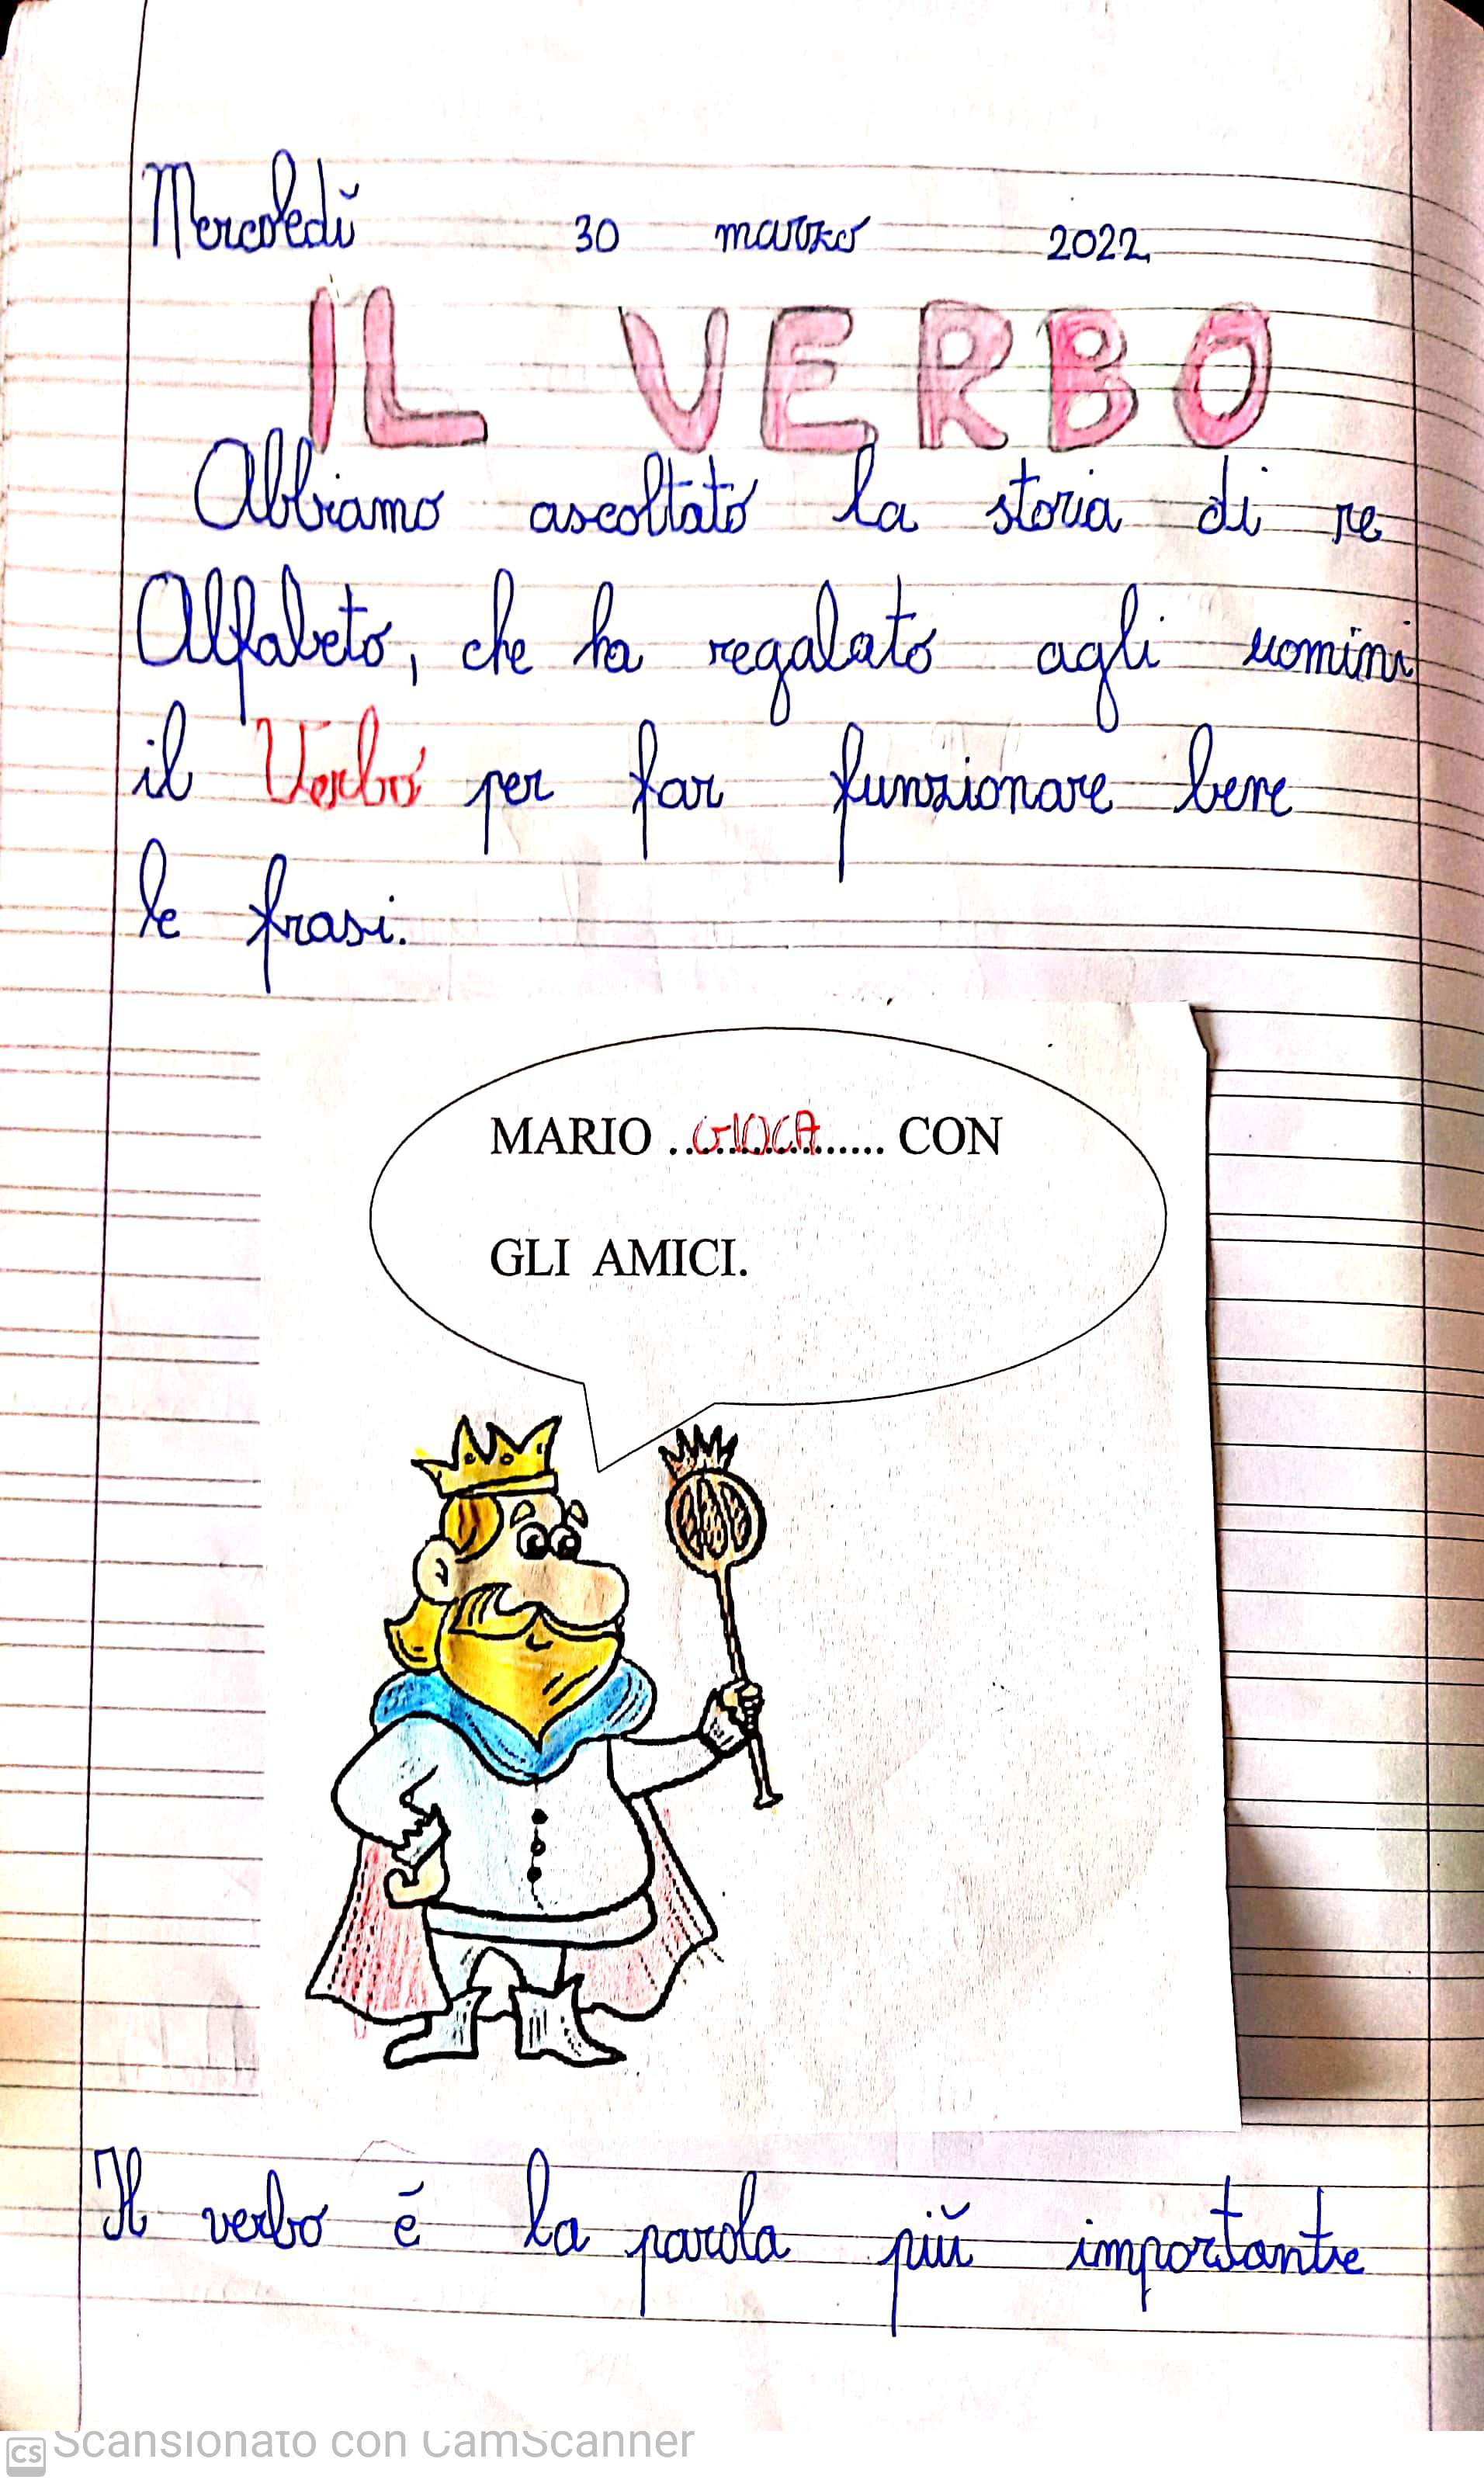 Mercoledì 30 marzo 2022
IL VERBO
Abbiamo ascoltato la storia di re
Alfabeto, che ha regalato agli uomini
il Verbo per far funzionare bene
le frasi.
MARIO ..GIOCA.............. CON
GLI AMICI.
Il verbo é la parola più importante
CS Scansionato con CamScanner